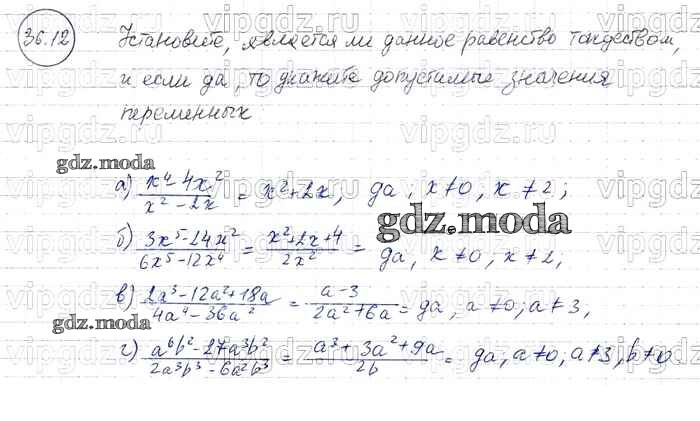 36.12
Установите, является ли данное равенство тождеством,
и если да, то укажите допустимые значения
переменных
gdz.moda
а) (x⁴-4x²)/(x²-2x) = x²+2x, да, x≠0, x≠2;
gdz.moda
б) (3x⁵-24x²)/(6x⁵-12x⁴) = (x²+2x+4)/(2x²) = да, x≠0, x≠2;
в) (2x³-12a²+18a)/(4a⁴-36a²) = (a-3)/(2a²+6a) = да, a≠0; a≠3,
gdz.moda
г) (a⁶b²-27a³b²)/(2a³b³-6a²b³) = (a³+3a²+9a)/(2b) = да, a≠0, a≠3, b≠0
vipgdz.ru